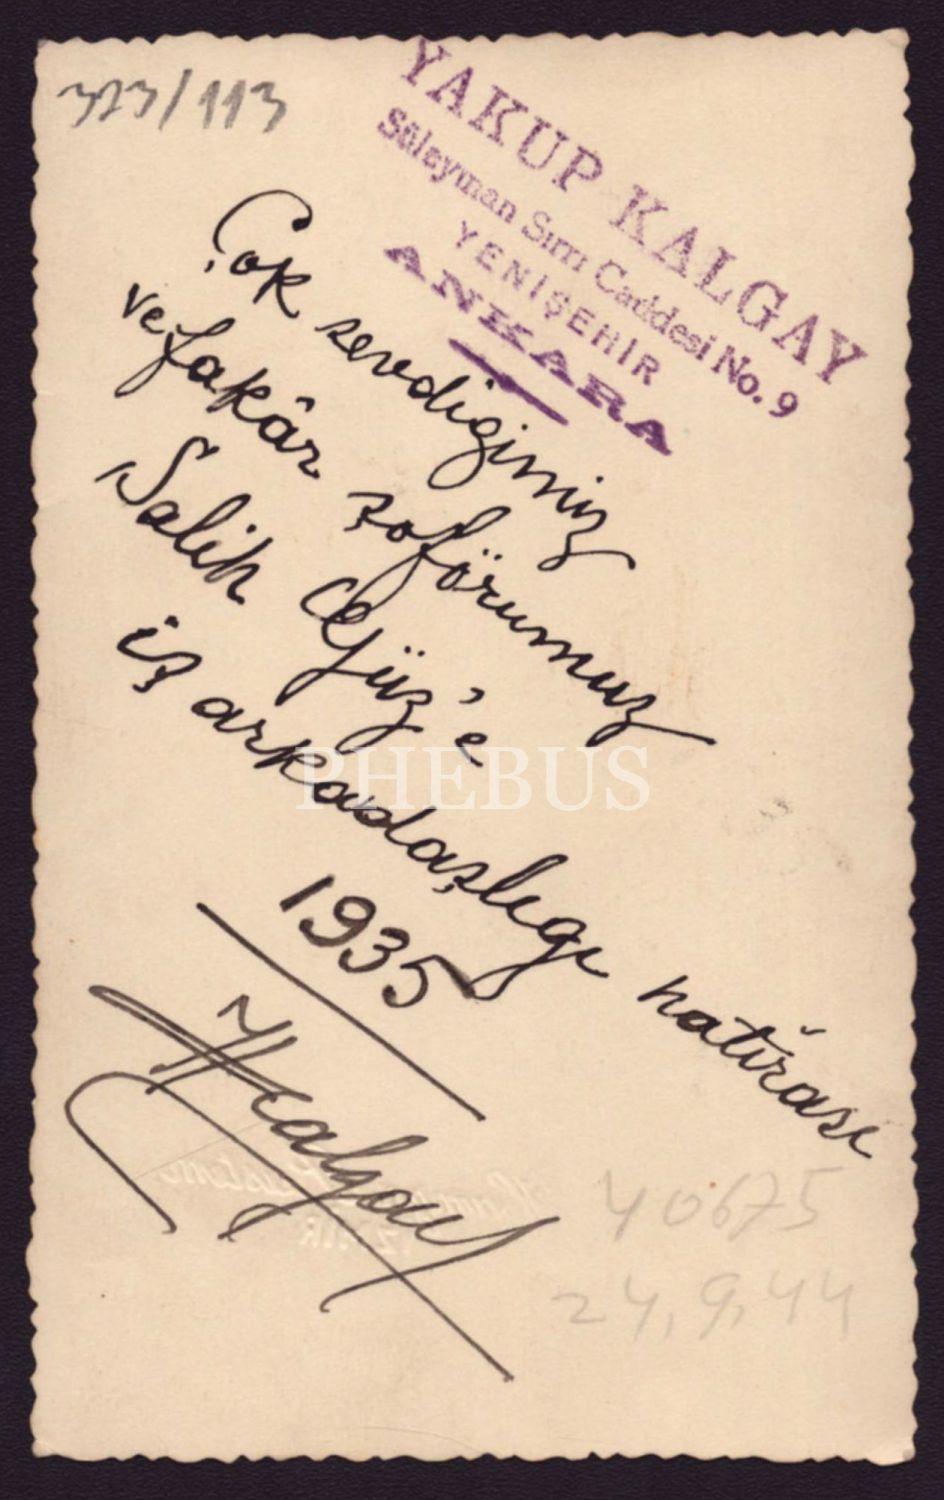 373/113
YAKUP KALGAY
Süleyman Sırrı Caddesi No. 9
YENİŞEHİR
ANKARA
Çok sevdiğimiz
vefakâr şoförumuz
Salih
iş arkadaşlığı hatırası
1935
PHEBUS
40675
24,9,44